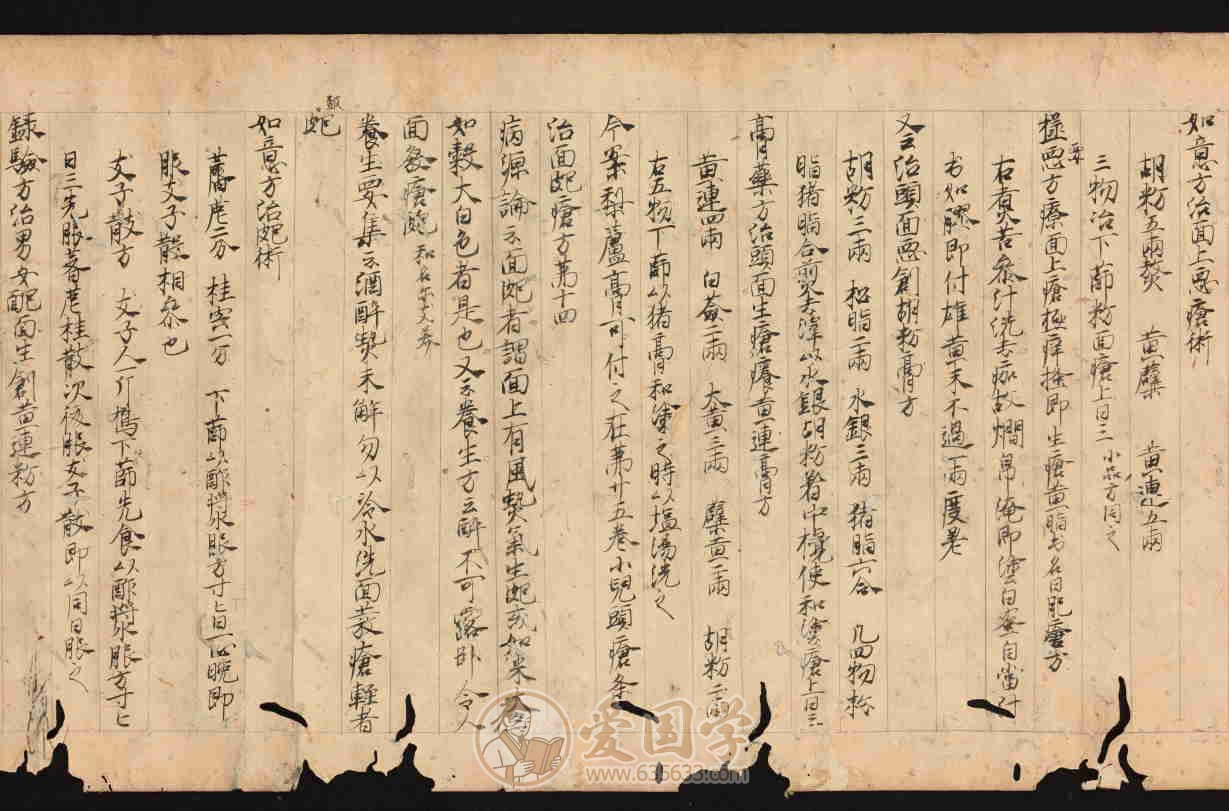 如意方治面上惡瘡術
胡粉五兩熬 黃蘗 黃連五兩
三物治下篩粉面瘡上日三 小品方同之
極要方療面上瘡極痒搔即生瘡黃脂出名曰肥瘡方
右煮苦參汁洗去痂故爛帛淹即塗白蜜自當汁
出如膠即付雄黃末不過一兩度差
又云治頭面惡創胡粉膏方
胡粉三兩 松脂二兩 水銀三兩 猪脂六合 凡四物松
脂猪脂合煎去滓以水銀胡粉著中攪使和塗瘡上日三
膏藥方治頭面生瘡癢黃連膏方
黃連四兩 白蘞二兩 大黃三兩 蘗黃二兩 胡粉二兩
右五物下篩以猪膏和塗之時以塩湯洗之
今案梨蘆膏可付之在第廿五卷小兒頭瘡条
治面皰瘡方第十四
病源論云面皰者謂面上有風熱氣生皰或如米大
如穀大白色者是也又云養生方云醉不可露卧令人
面發瘡皰
養生要集云酒醉熱未解勿以冷水洗面發瘡輕者
皰
如意方治皰術
菴 桂 一分 下篩以酢漿服方寸匕日一 晚即
服 子散相參也
子散方 子 斤搗下篩先食以酢漿服方寸匕
日三先服 桂散次後服 子散即以同日服之
録驗方治男女皰面生創黃連粉方
愛国学
www.635633.com